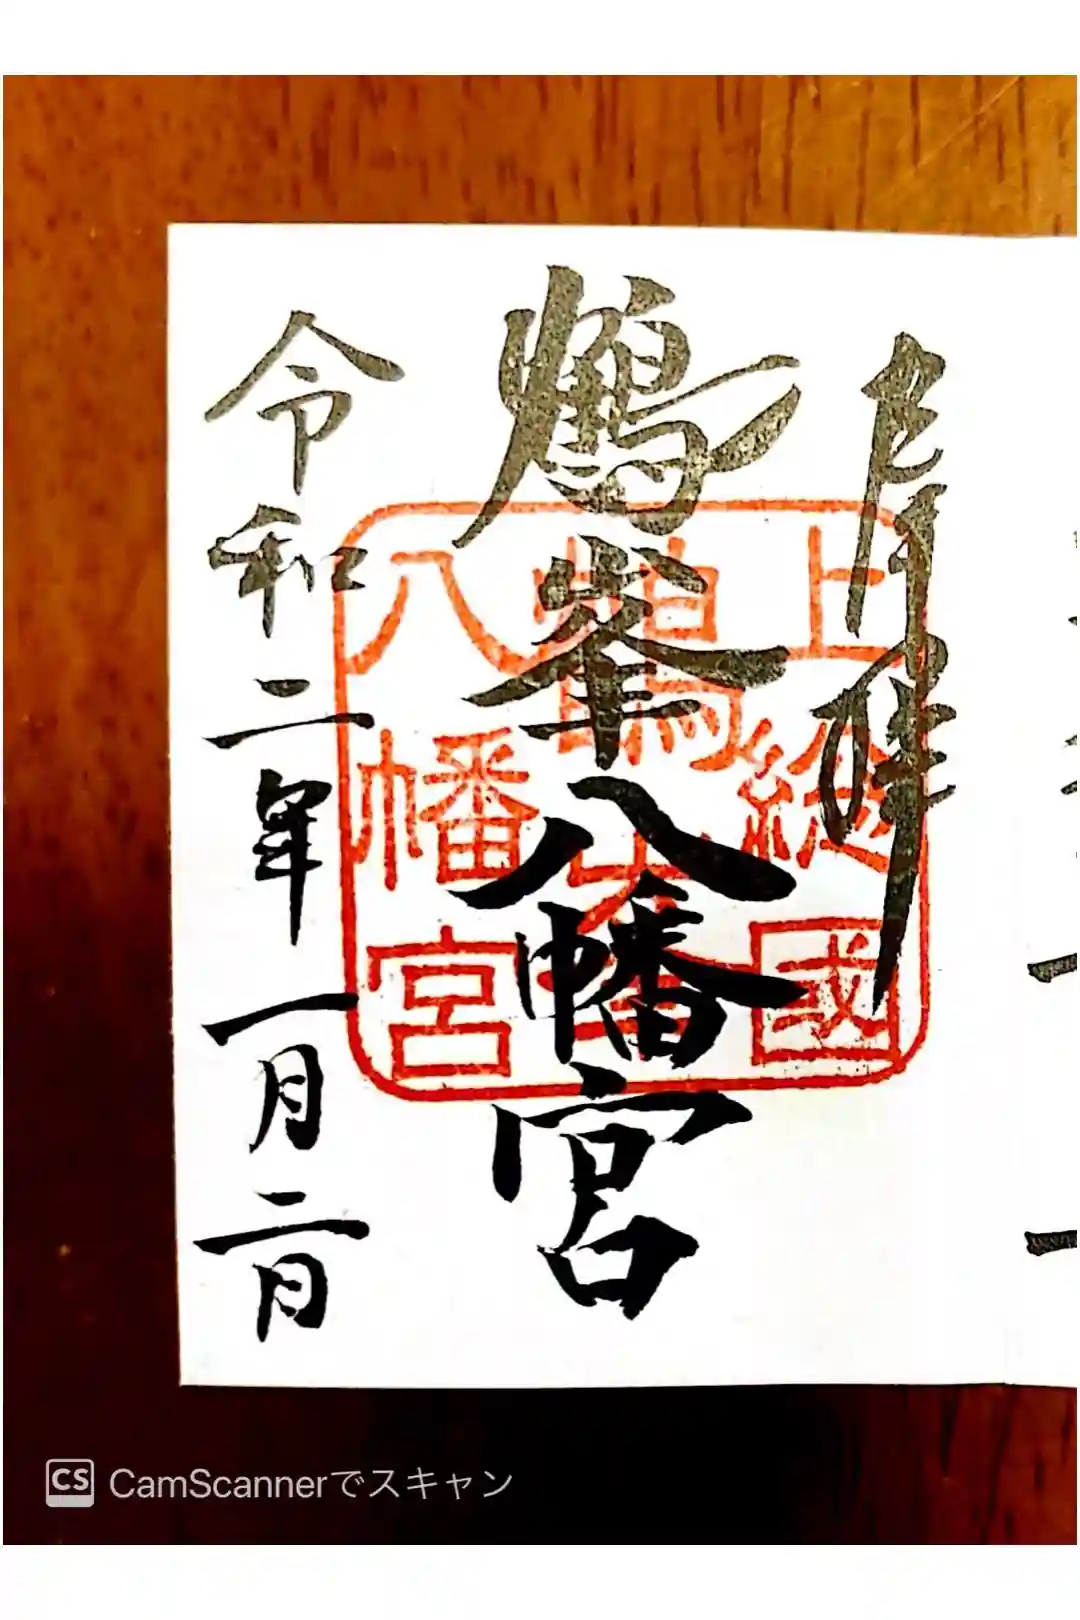 奉拝
鶴峯八幡宮
令和二年一月二日
上総國
鶴峯
八幡宮
CS CamScannerでスキャン